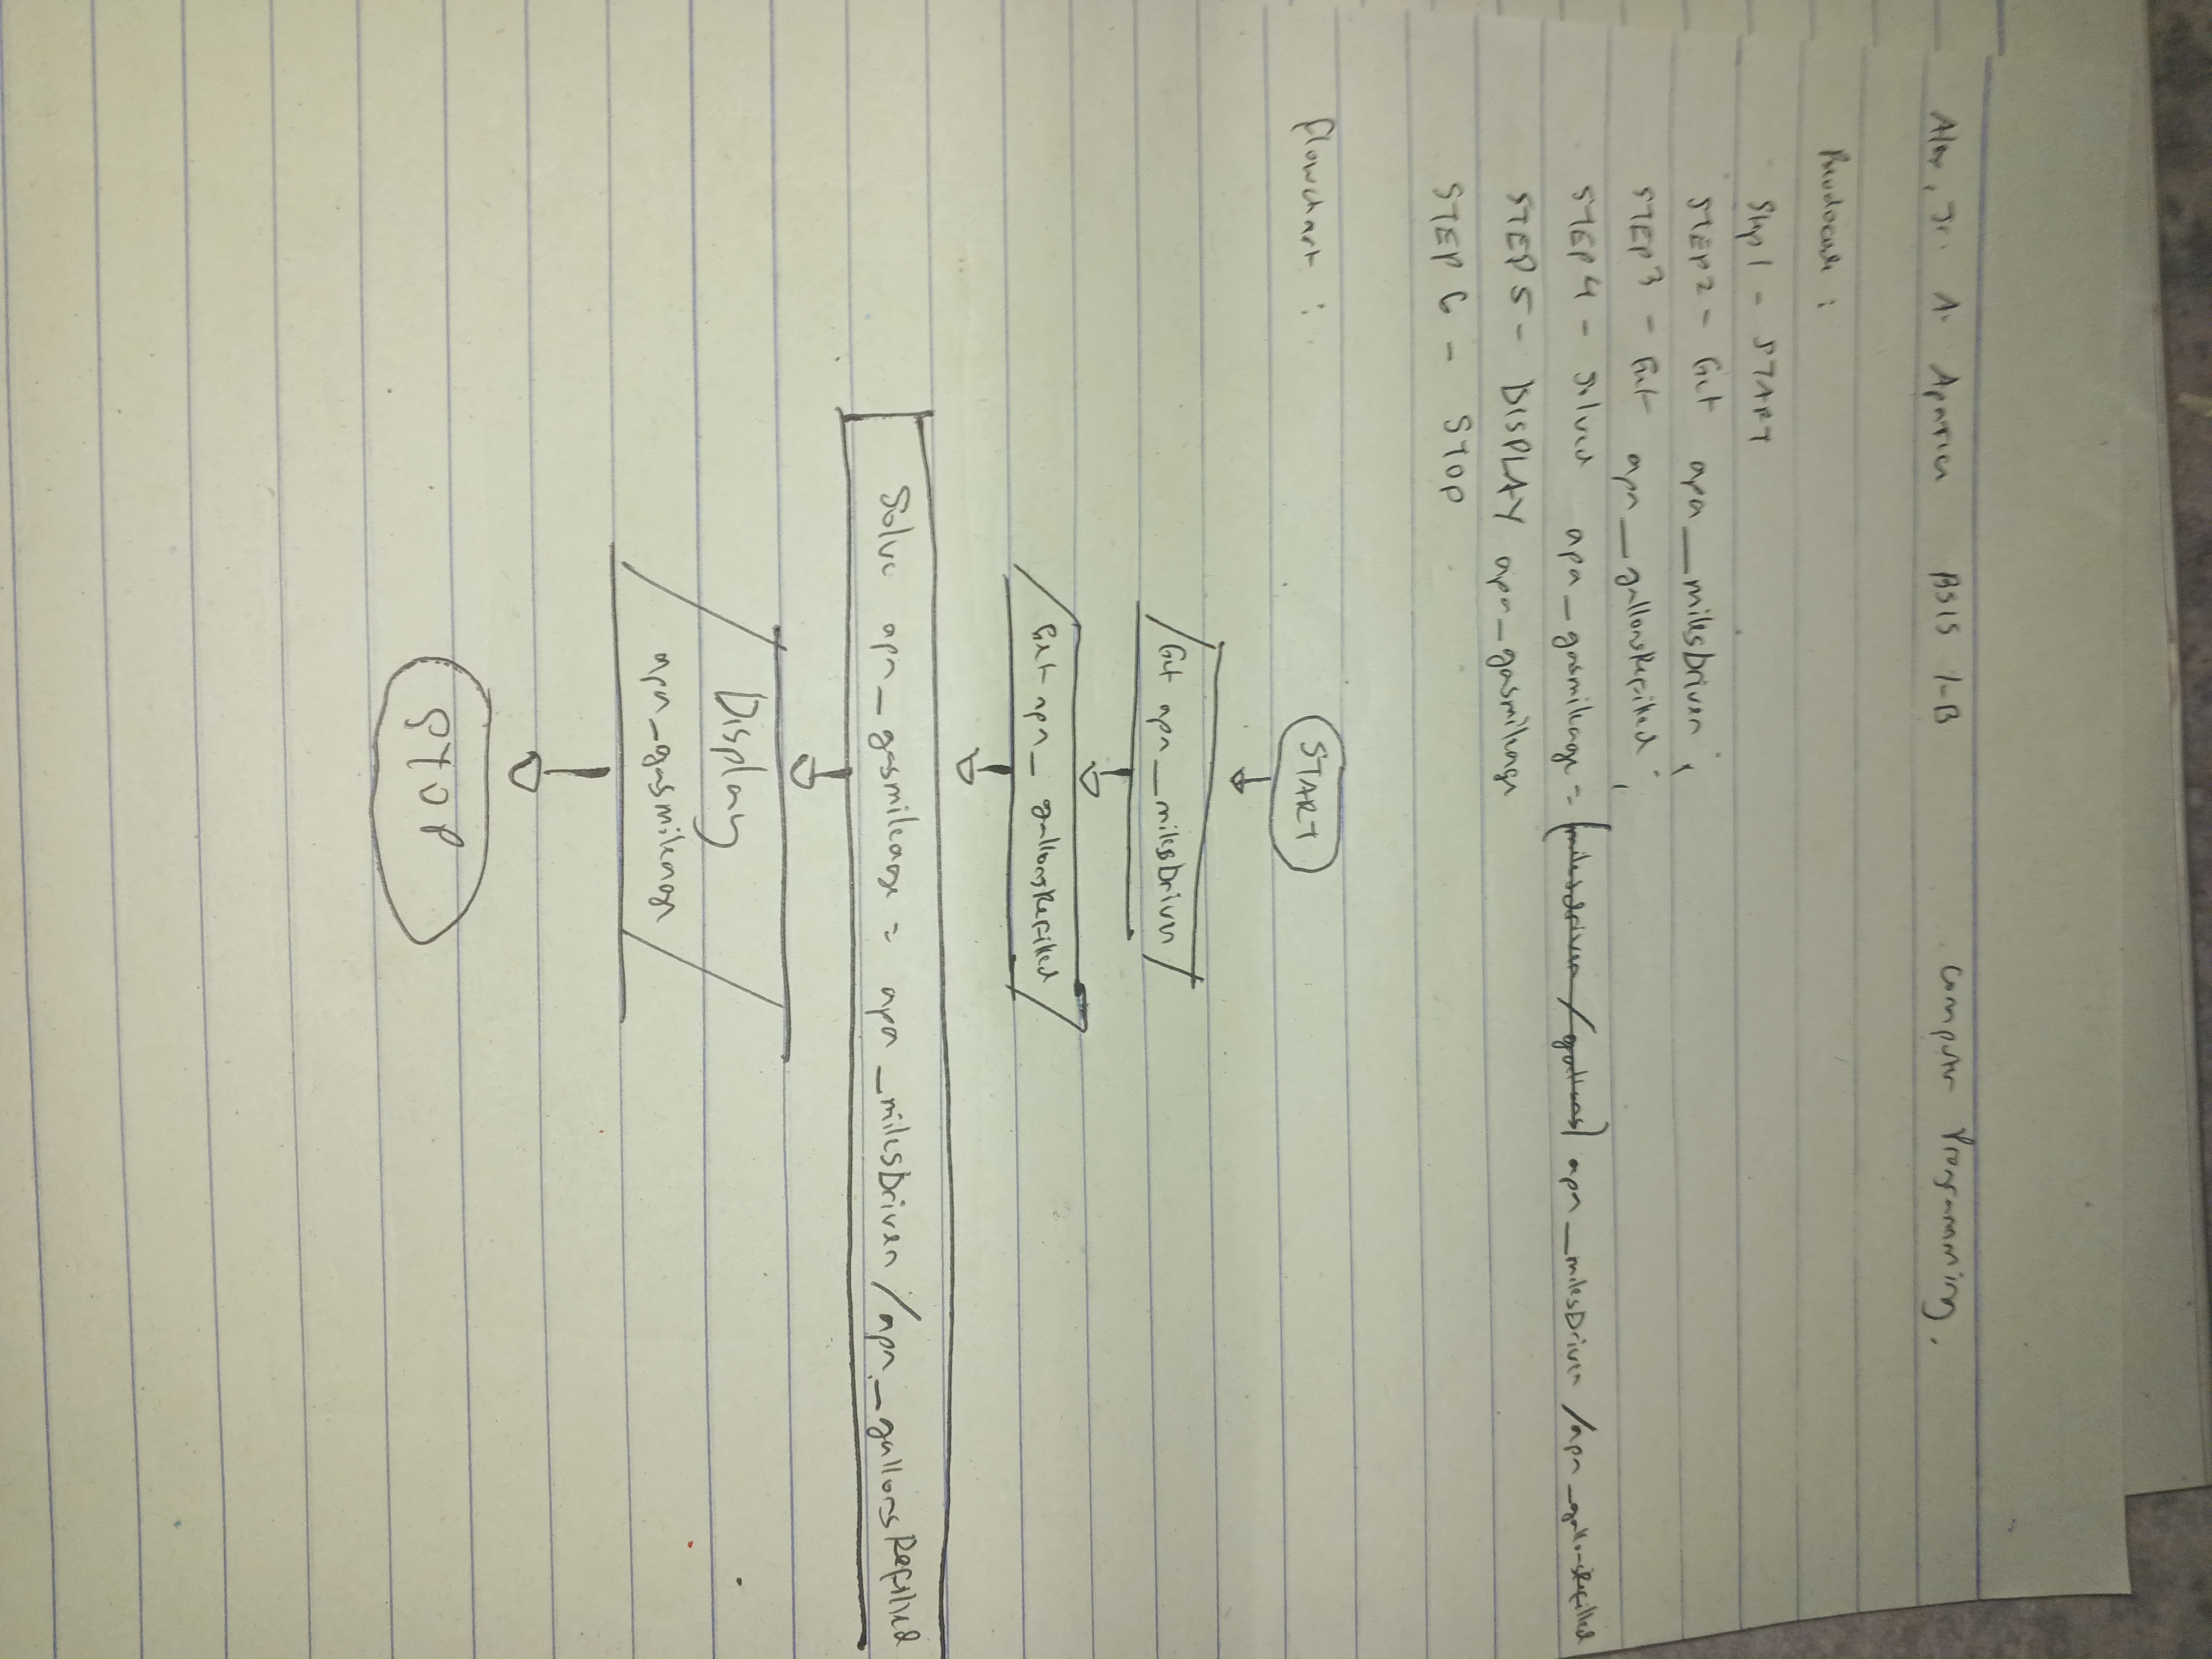 Jr. A. BSIS 1-B Computer Programming.
Step 1 - START
STEP 2 - Get apa_milesDriven ;
STEP 3 - Get apa_gallonsRefilled ;
STEP 4 - solved apa_gasmileage = (milesdriven / gallons) apa_milesDriven / apa_gallonsRefilled
STEP 5 - DISPLAY apa_gasmileage
STEP 6 - STOP
flowchart :
START
Get apa_milesDriven
Get apa_gallonsRefilled
Solve apa_gasmileage = apa_milesDriven / apa_gallonsRefilled
Display
apa_gasmileage
STOP